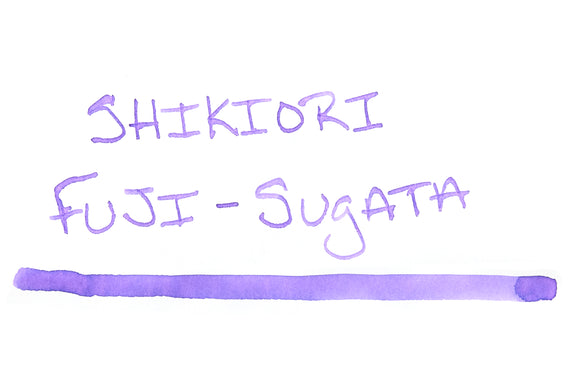 SHIKIORI
FUJI-SUgATA